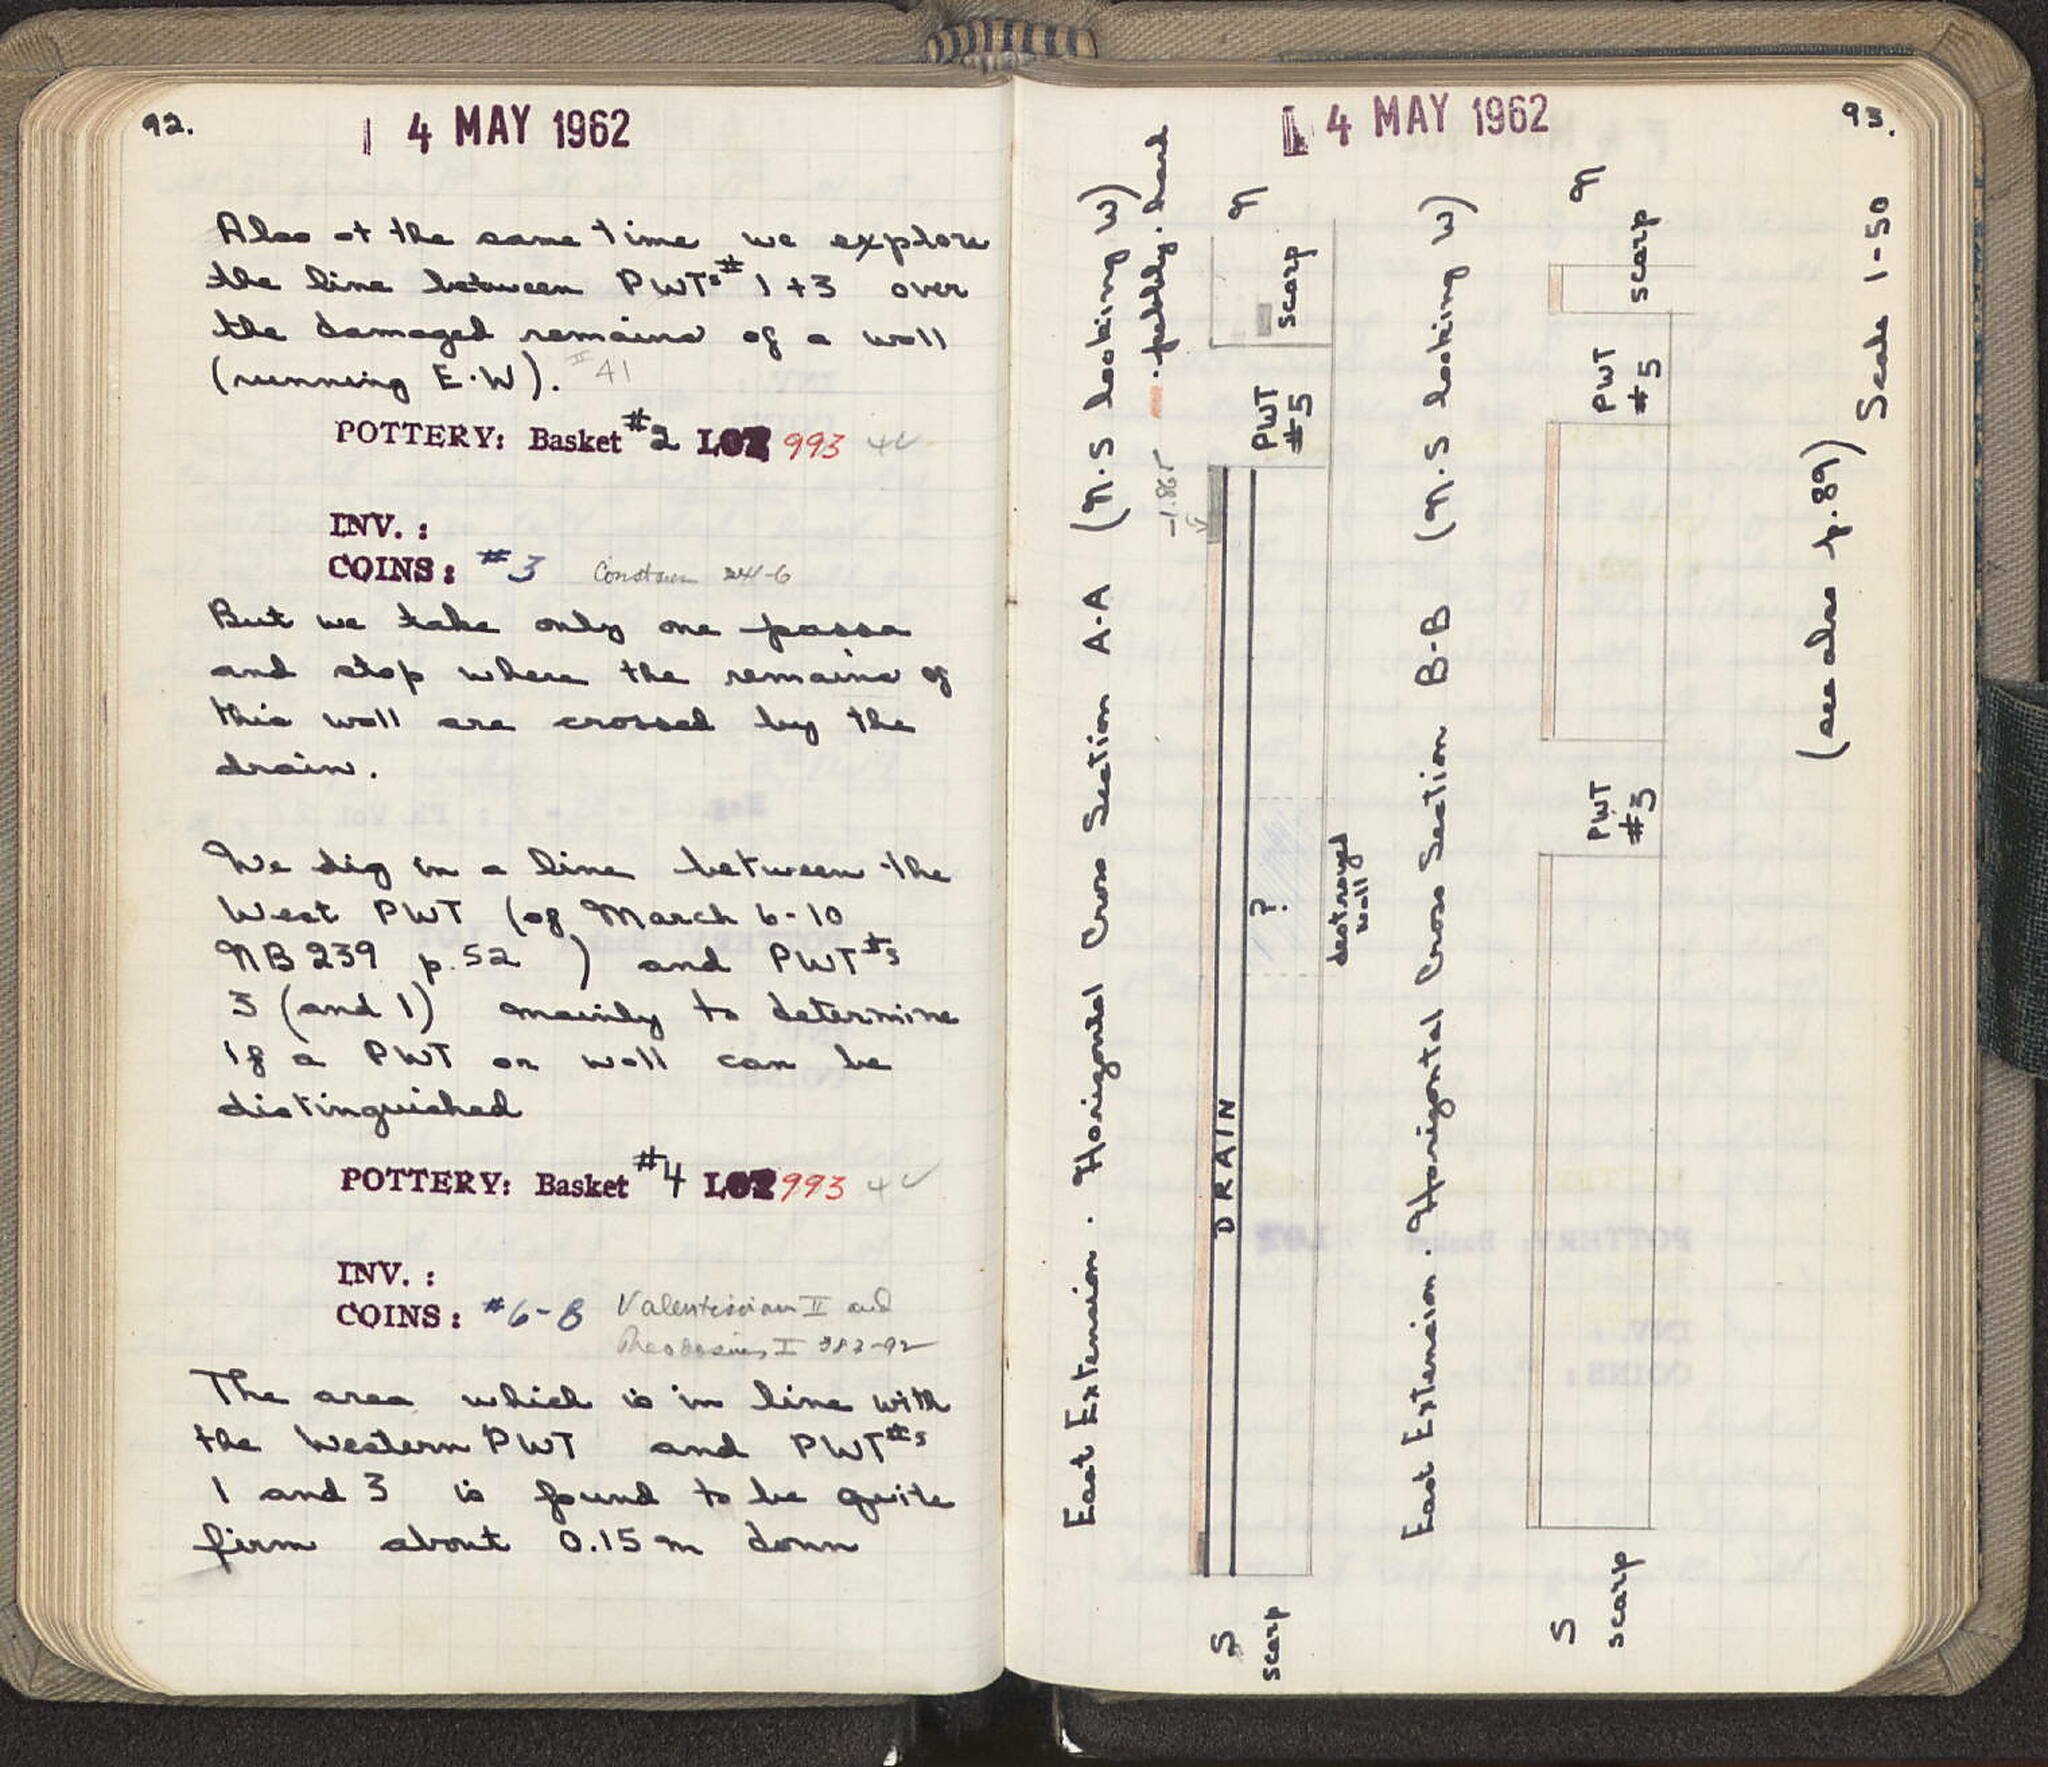 92.
14 MAY 1962
Also at the same time we explore
the line between PWTs # 1 + 3 over
the damaged remains of a wall
(running E-W). II 41
POTTERY: Basket #2 LOT 993
INV. :
COINS: #3
But we take only one passa
and stop where the remains of
this wall are crossed by the
drain.
We dig in a line between the
West PWT (of March 6-10
NB 239 p. 52 ) and PWT#s
3 (and 1) mainly to determine
if a PWT or wall can be
distinguished
POTTERY: Basket #4 LOT 993
INV. :
COINS: #6-8 Valentinian II and
Theodosius I 383-92
The area which is in line with
the Western PWT and PWT#s
1 and 3 is found to be quite
firm about 0.15 m down
93.
14 MAY 1962
East Extension. Horizontal Cross Section A-A (N.S looking W)
pebbly. hard
-1.865
N
scarp
PWT
#5
DRAIN
?
destroyed
wall
S
scarp
East Extension. Horizontal Cross Section B-B (N.S looking W)
N
scarp
PWT
#5
PWT
#3
S
scarp
(see also p. 89)
Scale 1-50